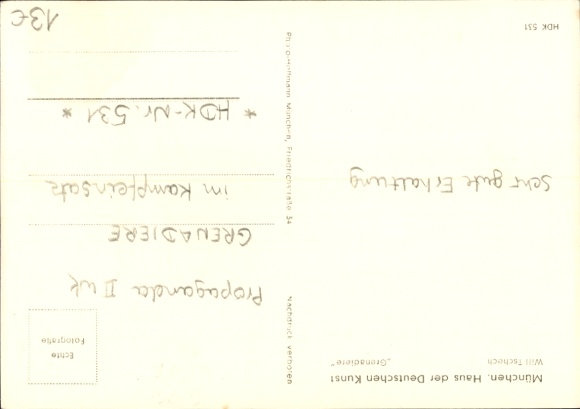 München. Haus der Deutschen Kunst
Will Tschech „Grenadiere"
Echte
Fotografie
Propaganda II WK
GRENADIERE
im Kampfeinsatz
* HDK-Nr. 531 *
Sehr gute Erhaltung
Nachdruck verboten
Photo-Hoffmann München, Friedrichstraße 34
HDK 531
13€